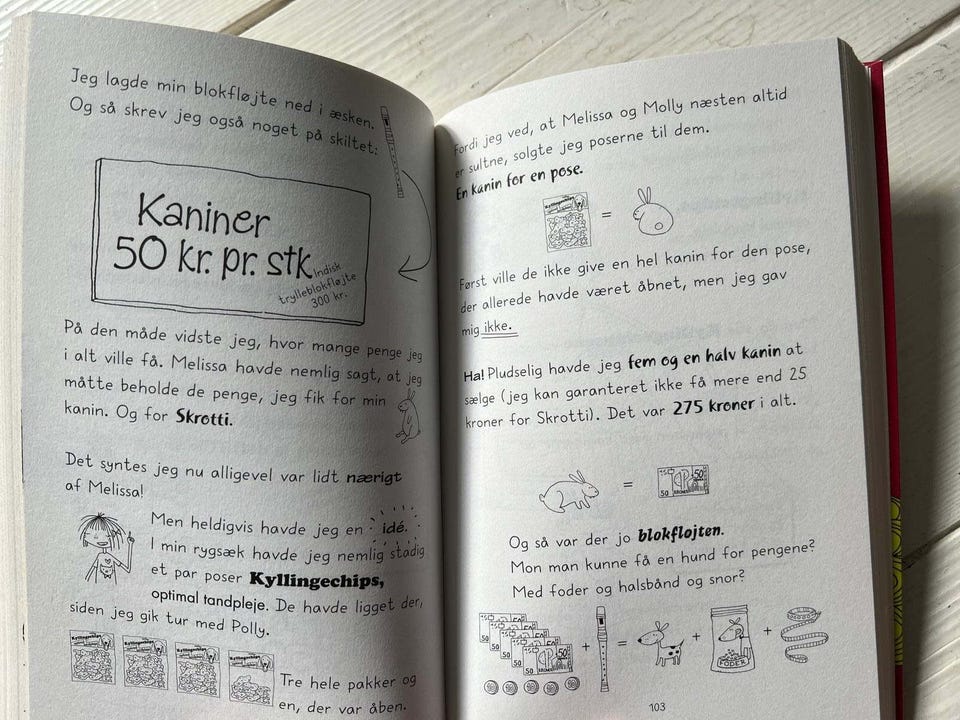 Jeg lagde min blokfløjte ned i æsken.
Og så skrev jeg også noget på skiltet:
Kaniner
50 kr. pr. stk.
Indisk
trylleblokfløjte
300 kr.
På den måde vidste jeg, hvor mange penge jeg
i alt ville få. Melissa havde nemlig sagt, at jeg
måtte beholde de penge, jeg fik for min
kanin. Og for Skrotti.
Det syntes jeg nu alligevel var lidt nærigt
af Melissa!
Men heldigvis havde jeg en idé.
I min rygsæk havde jeg nemlig stadig
et par poser Kyllingechips,
optimal tandpleje. De havde ligget der,
siden jeg gik tur med Polly.
Kyllingechips
Kyllingechips
Kyllingechips
Kyllingechips
Tre hele pakker og
en, der var åben.
Fordi jeg ved, at Melissa og Molly næsten altid
er sultne, solgte jeg poserne til dem.
En kanin for en pose.
Kyllingechips
=
Først ville de ikke give en hel kanin for den pose,
der allerede havde været åbnet, men jeg gav
mig ikke.
Ha! Pludselig havde jeg fem og en halv kanin at
sælge (jeg kan garanteret ikke få mere end 25
kroner for Skrotti). Det var 275 kroner i alt.
=
50
50
KRONER
Og så var der jo blokfløjten.
Mon man kunne få en hund for pengene?
Med foder og halsbånd og snor?
50
50
50
50
50
+
=
+
FODER
+
103